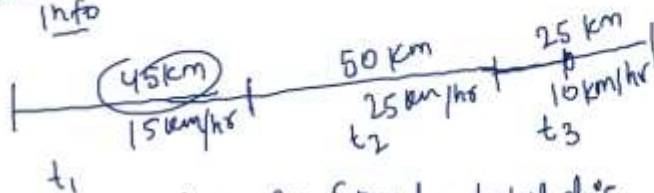 Info
45km 50 km 25 km
15 km/hr 25 km/hr 10 km/hr
t1 t2 t3